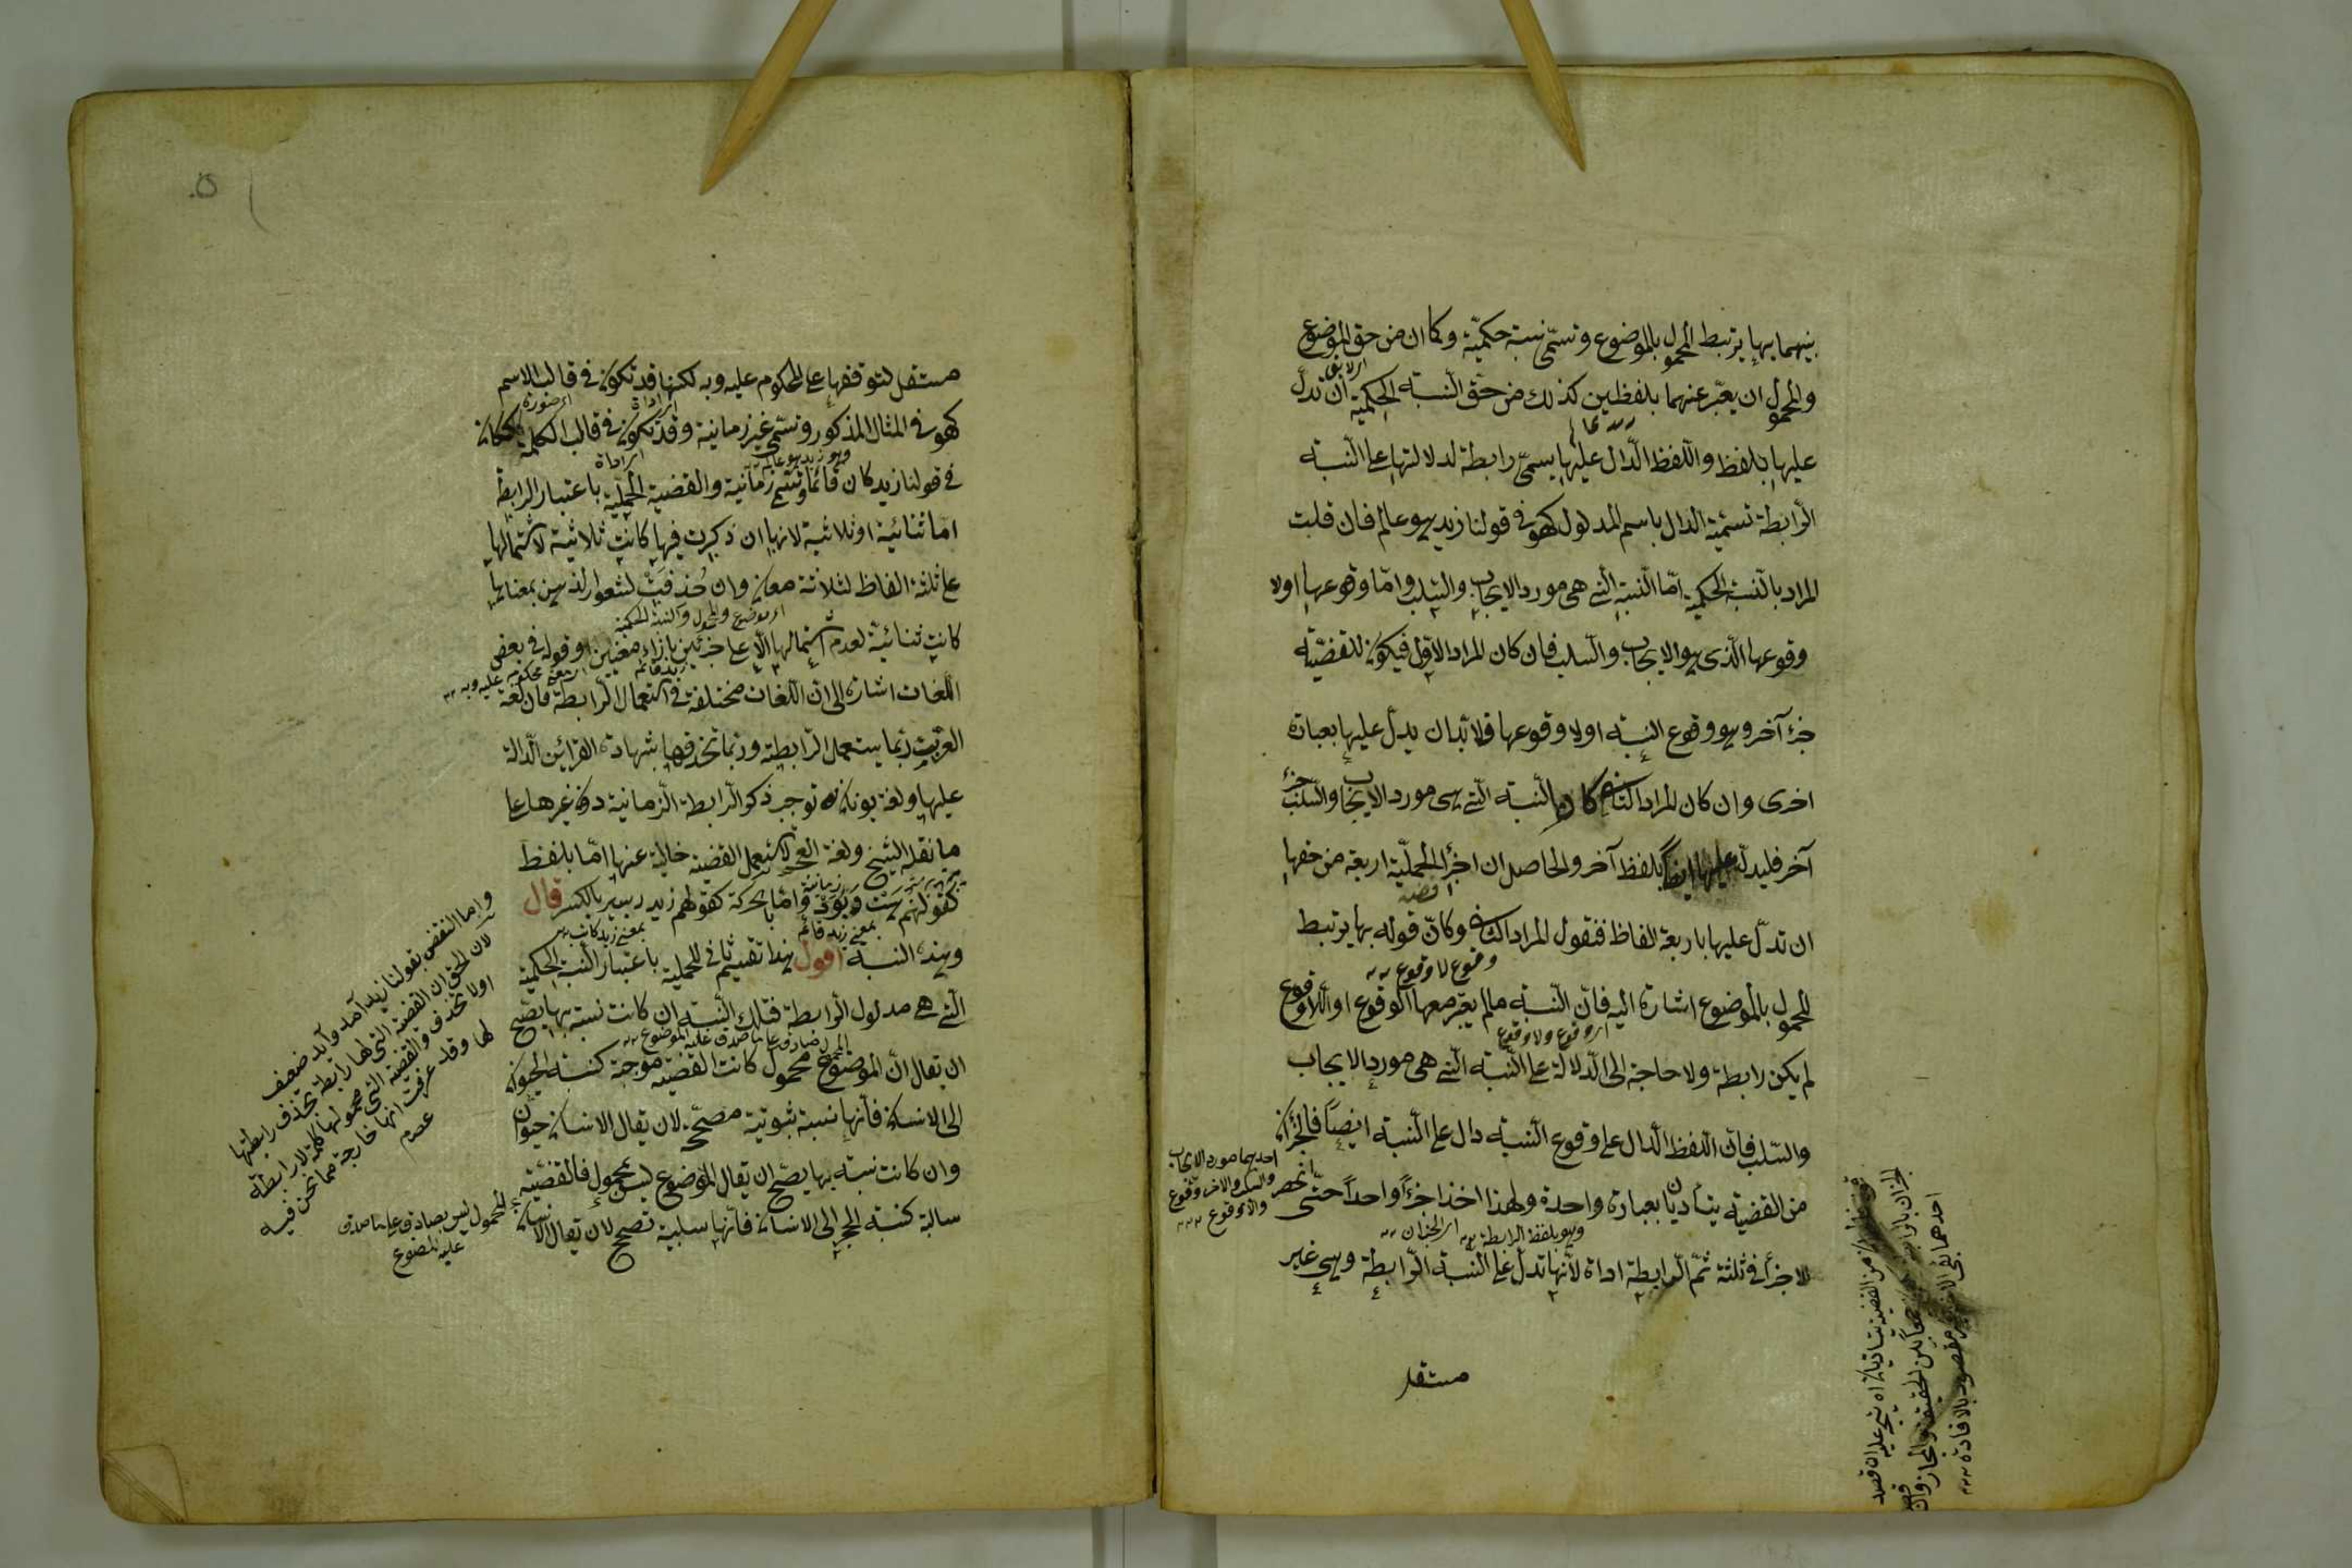 بينهما بها يرتبط المحمول بالموضوع وتسمى نسبة حكمية وكما ان من حق الموضوع
والمحمول ان يعبر عنهما بلفظين كذلك من حق النسبة الحكمية ان تدل
عليها بلفظ واللفظ الدال عليها يسمى رابطة لدلالتها على النسبة
الرابطة تسمية الدال باسم المدلول كهو في قولنا زيد هو عالم فان قلت
المراد بالنسبة الحكمية اما النسبة التي هي مورد الايجاب والسلب واما وقوعها اولا
وقوعها الذي هو الايجاب والسلب فان كان المراد الاول فيكون للقضية
جزء آخر وهو وقوع النسبة اولا وقوعها فلا بد ان يدل عليها بعبارة
اخرى وان كان المراد الثاني كان النسبة التي هي مورد الايجاب والسلب جزء
آخر فليدل عليها ايضا بلفظ آخر والحاصل ان اجزاء الحملية اربعة من حقها
ان تدل عليها باربعة الفاظ فنقول المراد الثاني وكان قوله بها يرتبط
وقوع لا وقوع
المحمول بالموضوع اشارة اليه فان النسبة مالم يعتبر معها الوقوع او اللاوقوع
لم يكن رابطة ولا حاجة الى الدلالة على النسبة التي هي مورد الايجاب
والسلب فان اللفظ الدال على وقوع النسبة دال على النسبة ايضا فالجزآن
من القضية يتاديان بعبارة واحدة ولهذا اخذا جزءا واحدا حتى انحصر
احديهما مورد الايجاب
والسلب والاخر وقوع
واللاوقوع
وهو بلفظ الرابطة
اى الجزآن
الاجزاء في ثلثة ثم الرابطة اداة لانها تدل على النسبة الرابطة وهي غير
مستقل
احدهما بقى الاخر غير مقصود بالافادة
مستقل لتوقفها على المحكوم عليه وبه لكنها قد تكون في قالب الاسم
كهو في المثال المذكور وتسمى غير زمانية وقد تكون في قالب الكلمة ككان
في قولنا زيد كان قائما وتسمى زمانية والقضية الحملية باعتبار الرابطة
اما ثنائية او ثلاثية لانها ان ذكرت فيها كانت ثلاثية لاشتمالها
على ثلثة الفاظ لثلاثة معان وان حذفت لشعور الذهن بمعناها
اى موضوع والمحمول والنسبة الحكمية
كانت ثنائية لعدم اشتمالها الا على جزئين بازاء معنيين وقوله في بعض
اللغات اشارة الى ان اللغات مختلفة في استعمال الرابطة فان لغة
العرب ربما يستعمل الرابطة وربما تحذفها بشهادة القرائن الدالة
عليها ولغة يونان توجب ذكر الرابطة الزمانية دون غيرها على
ما نقله الشيخ ولغة العجم لا تستعمل القضية خالية عنها اما بلفظ
كقولهم هست وبود واما بحركة كقولهم زيد دبير بالكسر قال
بمعنى زيد قائم
بمعنى زيد كاتب
وهذه النسبة اقول هذا تقسيم ثاني للحملية باعتبار النسبة الحكمية
التي هي مدلول الرابطة فتلك النسبة ان كانت نسبة بها يصح
ان يقال ان الموضوع محمول كانت القضية موجبة كنسبة الحيوان
الى الانسان فانها نسبة ثبوتية مصححة لان يقال الانسان حيوان
وان كانت نسبة بها يصح ان يقال الموضوع ليس بمحمول فالقضية
سالبة كنسبة الحجر الى الانسان فانها سلبية تصحح لان يقال الانسان
المحمول ليس بصادق على ما صدق
عليه الموضوع
واما النقض بقولنا زيد آمد وآيد ضعيف
لان الحق ان القضية التي لها رابطة تحذف رابطتها
اولا تحذف والقضية التي محمولها كلمة لا رابطة
لها وقد عرفت انها خارجة مما نحن فيه
عصم